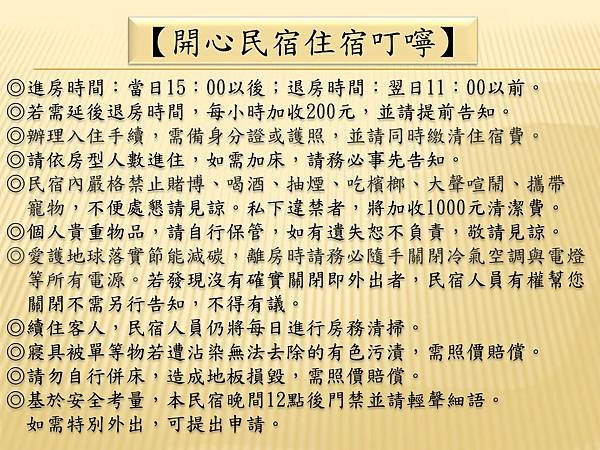 【開心民宿住宿叮嚀】
◎進房時間：當日15：00以後；退房時間：翌日11：00以前。
◎若需延後退房時間，每小時加收200元，並請提前告知。
◎辦理入住手續，需備身分證或護照，並請同時繳清住宿費。
◎請依房型人數進住，如需加床，請務必事先告知。
◎民宿內嚴格禁止賭博、喝酒、抽煙、吃檳榔、大聲喧鬧、攜帶
寵物，不便處懇請見諒。私下違禁者，將加收1000元清潔費。
◎個人貴重物品，請自行保管，如有遺失恕不負責，敬請見諒。
◎愛護地球落實節能減碳，離房時請務必隨手關閉冷氣空調與電燈
等所有電源。若發現沒有確實關閉即外出者，民宿人員有權幫您
關閉不需另行告知，不得有議。
◎續住客人，民宿人員仍將每日進行房務清掃。
◎寢具被單等物若遭沾染無法去除的有色污漬，需照價賠償。
◎請勿自行併床，造成地板損毀，需照價賠償。
◎基於安全考量，本民宿晚間12點後門禁並請輕聲細語。
如需特別外出，可提出申請。